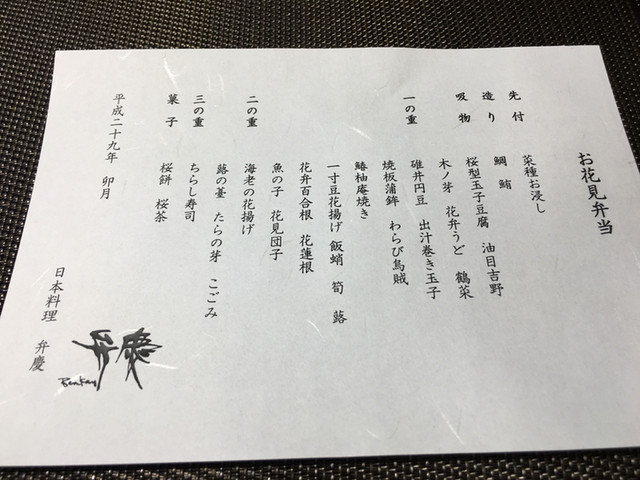 お花見弁当
先付 菜種お浸し
造り 鯛 鮪
吸物 桜型玉子豆腐 油目吉野
木ノ芽 花弁うど 鶴菜
一の重 碓井円豆 出汁巻き玉子
焼板蒲鉾 わらび烏賊
鰆柚庵焼き
一寸豆花揚げ 飯蛸 筍 蕗
花弁百合根 花蓮根
魚の子 花見団子
二の重 海老の花揚げ
蕗の薹 たらの芽 こごみ
三の重 ちらし寿司
菓子 桜餅 桜茶
平成二十九年 卯月
日本料理 弁慶
弁慶
Benkay